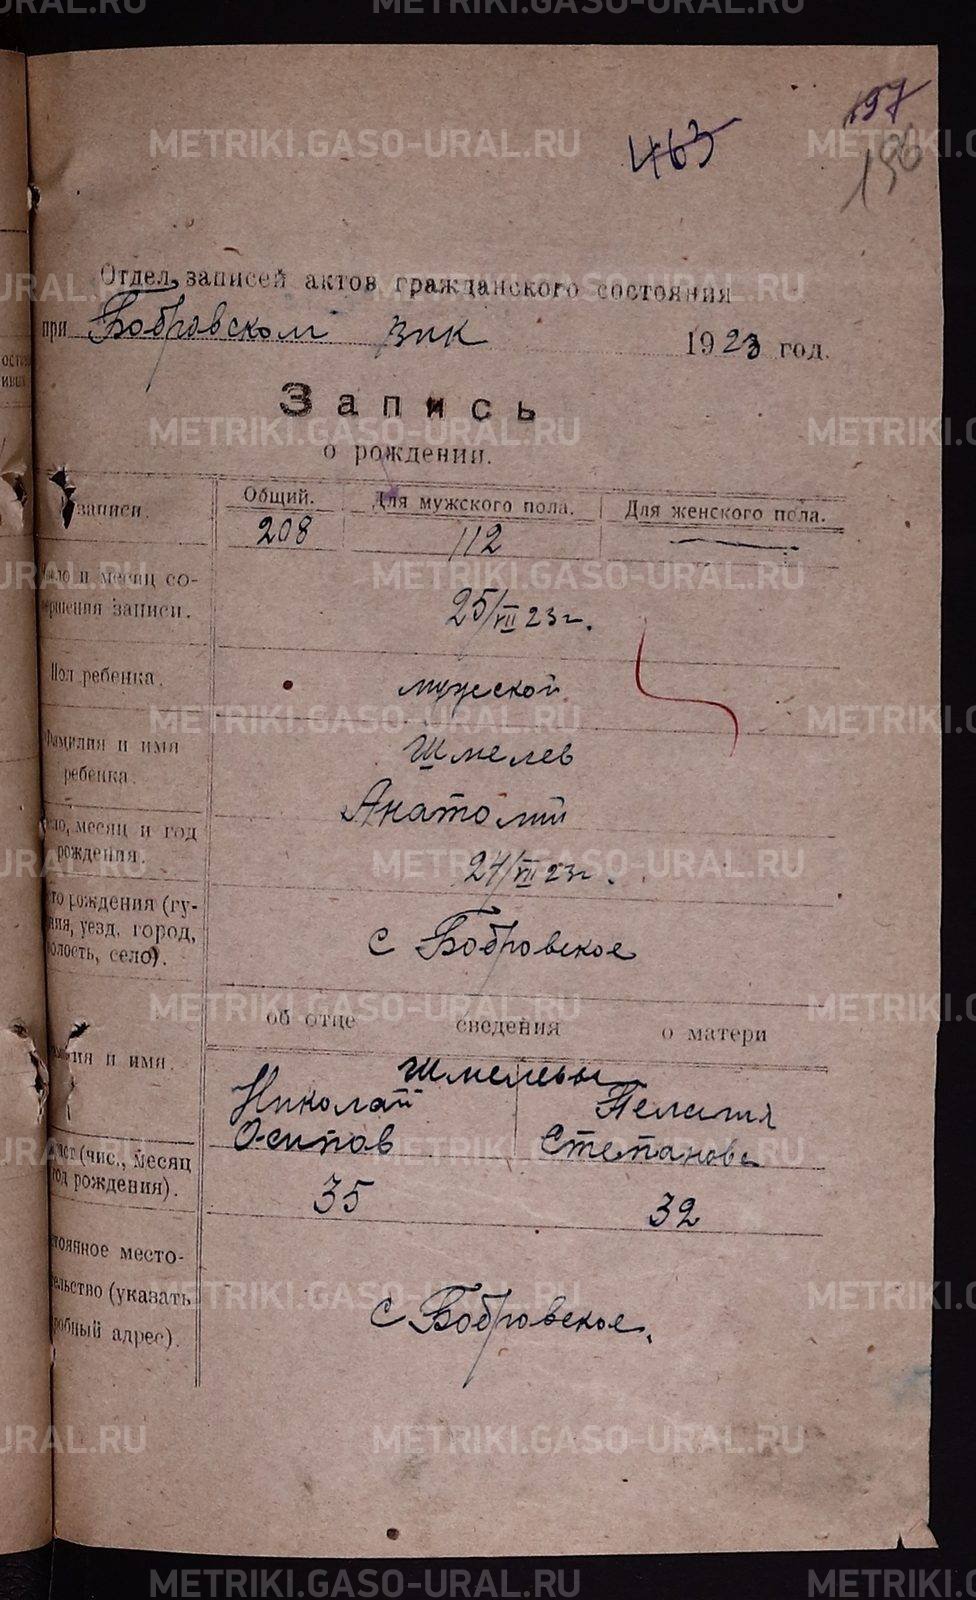 197
463
196
Отдел записей актов гражданского состояния
при Бобровском вик 1923 год.
Запись
о рождении.
записи.
Общий. Для мужского пола. Для женского пола.
208 112 —
число и месяц со-
вершения записи.
25/VII 23 г.
Пол ребенка.
мужской
Фамилия и имя
ребенка.
Шмелев
Анатолий
месяц и год
рождения.
24/VII 23 г.
рождения (гу-
уезд, город,
волость, село).
с Бобровское
об отце сведения о матери
и имя.
Шмелевы
Николай Пелагия
Осипов Степанова
(чис., месяц
год рождения).
35 32
место-
(указать
адрес).
с Бобровское.
METRIKI.GASO-URAL.RU